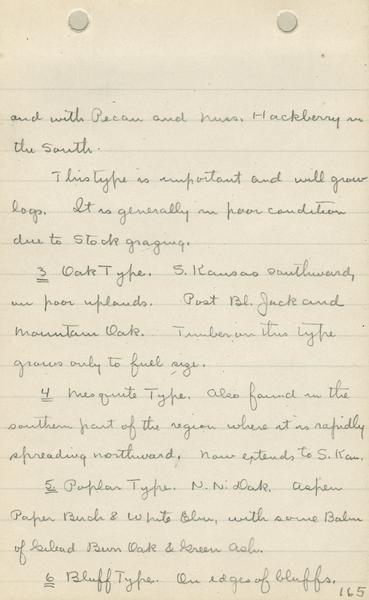 and with Pecan and Miss. Hackberry in
the South.
This type is important and will grow
logs. It is generally in poor condition
due to Stock grazing.
3 Oak Type. S. Kansas southward,
on poor uplands. Post Bl. Jack and
Mountain Oak. Timber on this type
grows only to fuel size.
4 Mesquite Type. Also found in the
southern part of the region where it is rapidly
spreading northward. Now extends to S. Kan.
5 Poplar Type. N. N. Dak. Aspen
Paper Birch & White Elm, with some Balm
of Gilead Burr Oak & Green Ash.
6 Bluff Type. On edges of bluffs.
165